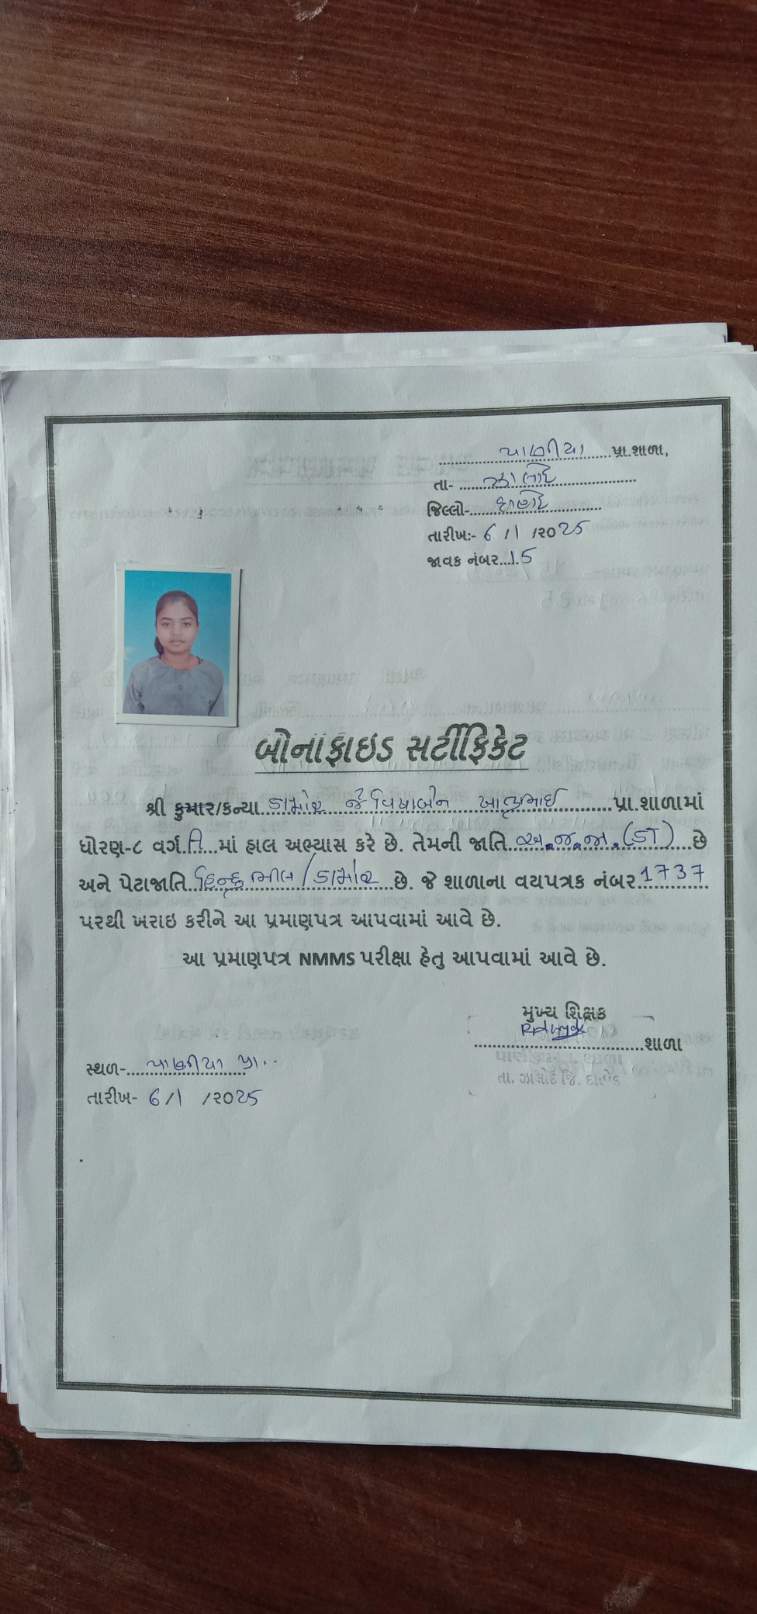 પાણીયા પ્રા.શાળા,
તા- ઝાલોદ
જિલ્લો- દાહોદ
તારીખ:- 6 /1 /2025
જાવક નંબર...1.5
બોનાફાઇડ સર્ટીફિકેટ
શ્રી કુમાર/કન્યા ડામોર પ્રા.શાળામાં
ધોરણ-૮ વર્ગ માં હાલ અભ્યાસ કરે છે. તેમની જાતિ અ.જ.જા. (ST) છે
અને પેટાજાતિ હિન્દુ ભીલ / ડામોર છે. જે શાળાના વયપત્રક નંબર 1737
પરથી ખરાઇ કરીને આ પ્રમાણપત્ર આપવામાં આવે છે.
આ પ્રમાણપત્ર NMMS પરીક્ષા હેતુ આપવામાં આવે છે.
મુખ્ય શિક્ષક
શાળા
તા. ઝાલોદ જિ. દાહોદ
સ્થળ- પાણીયા પ્રા..
તારીખ- 6 /1 /2025